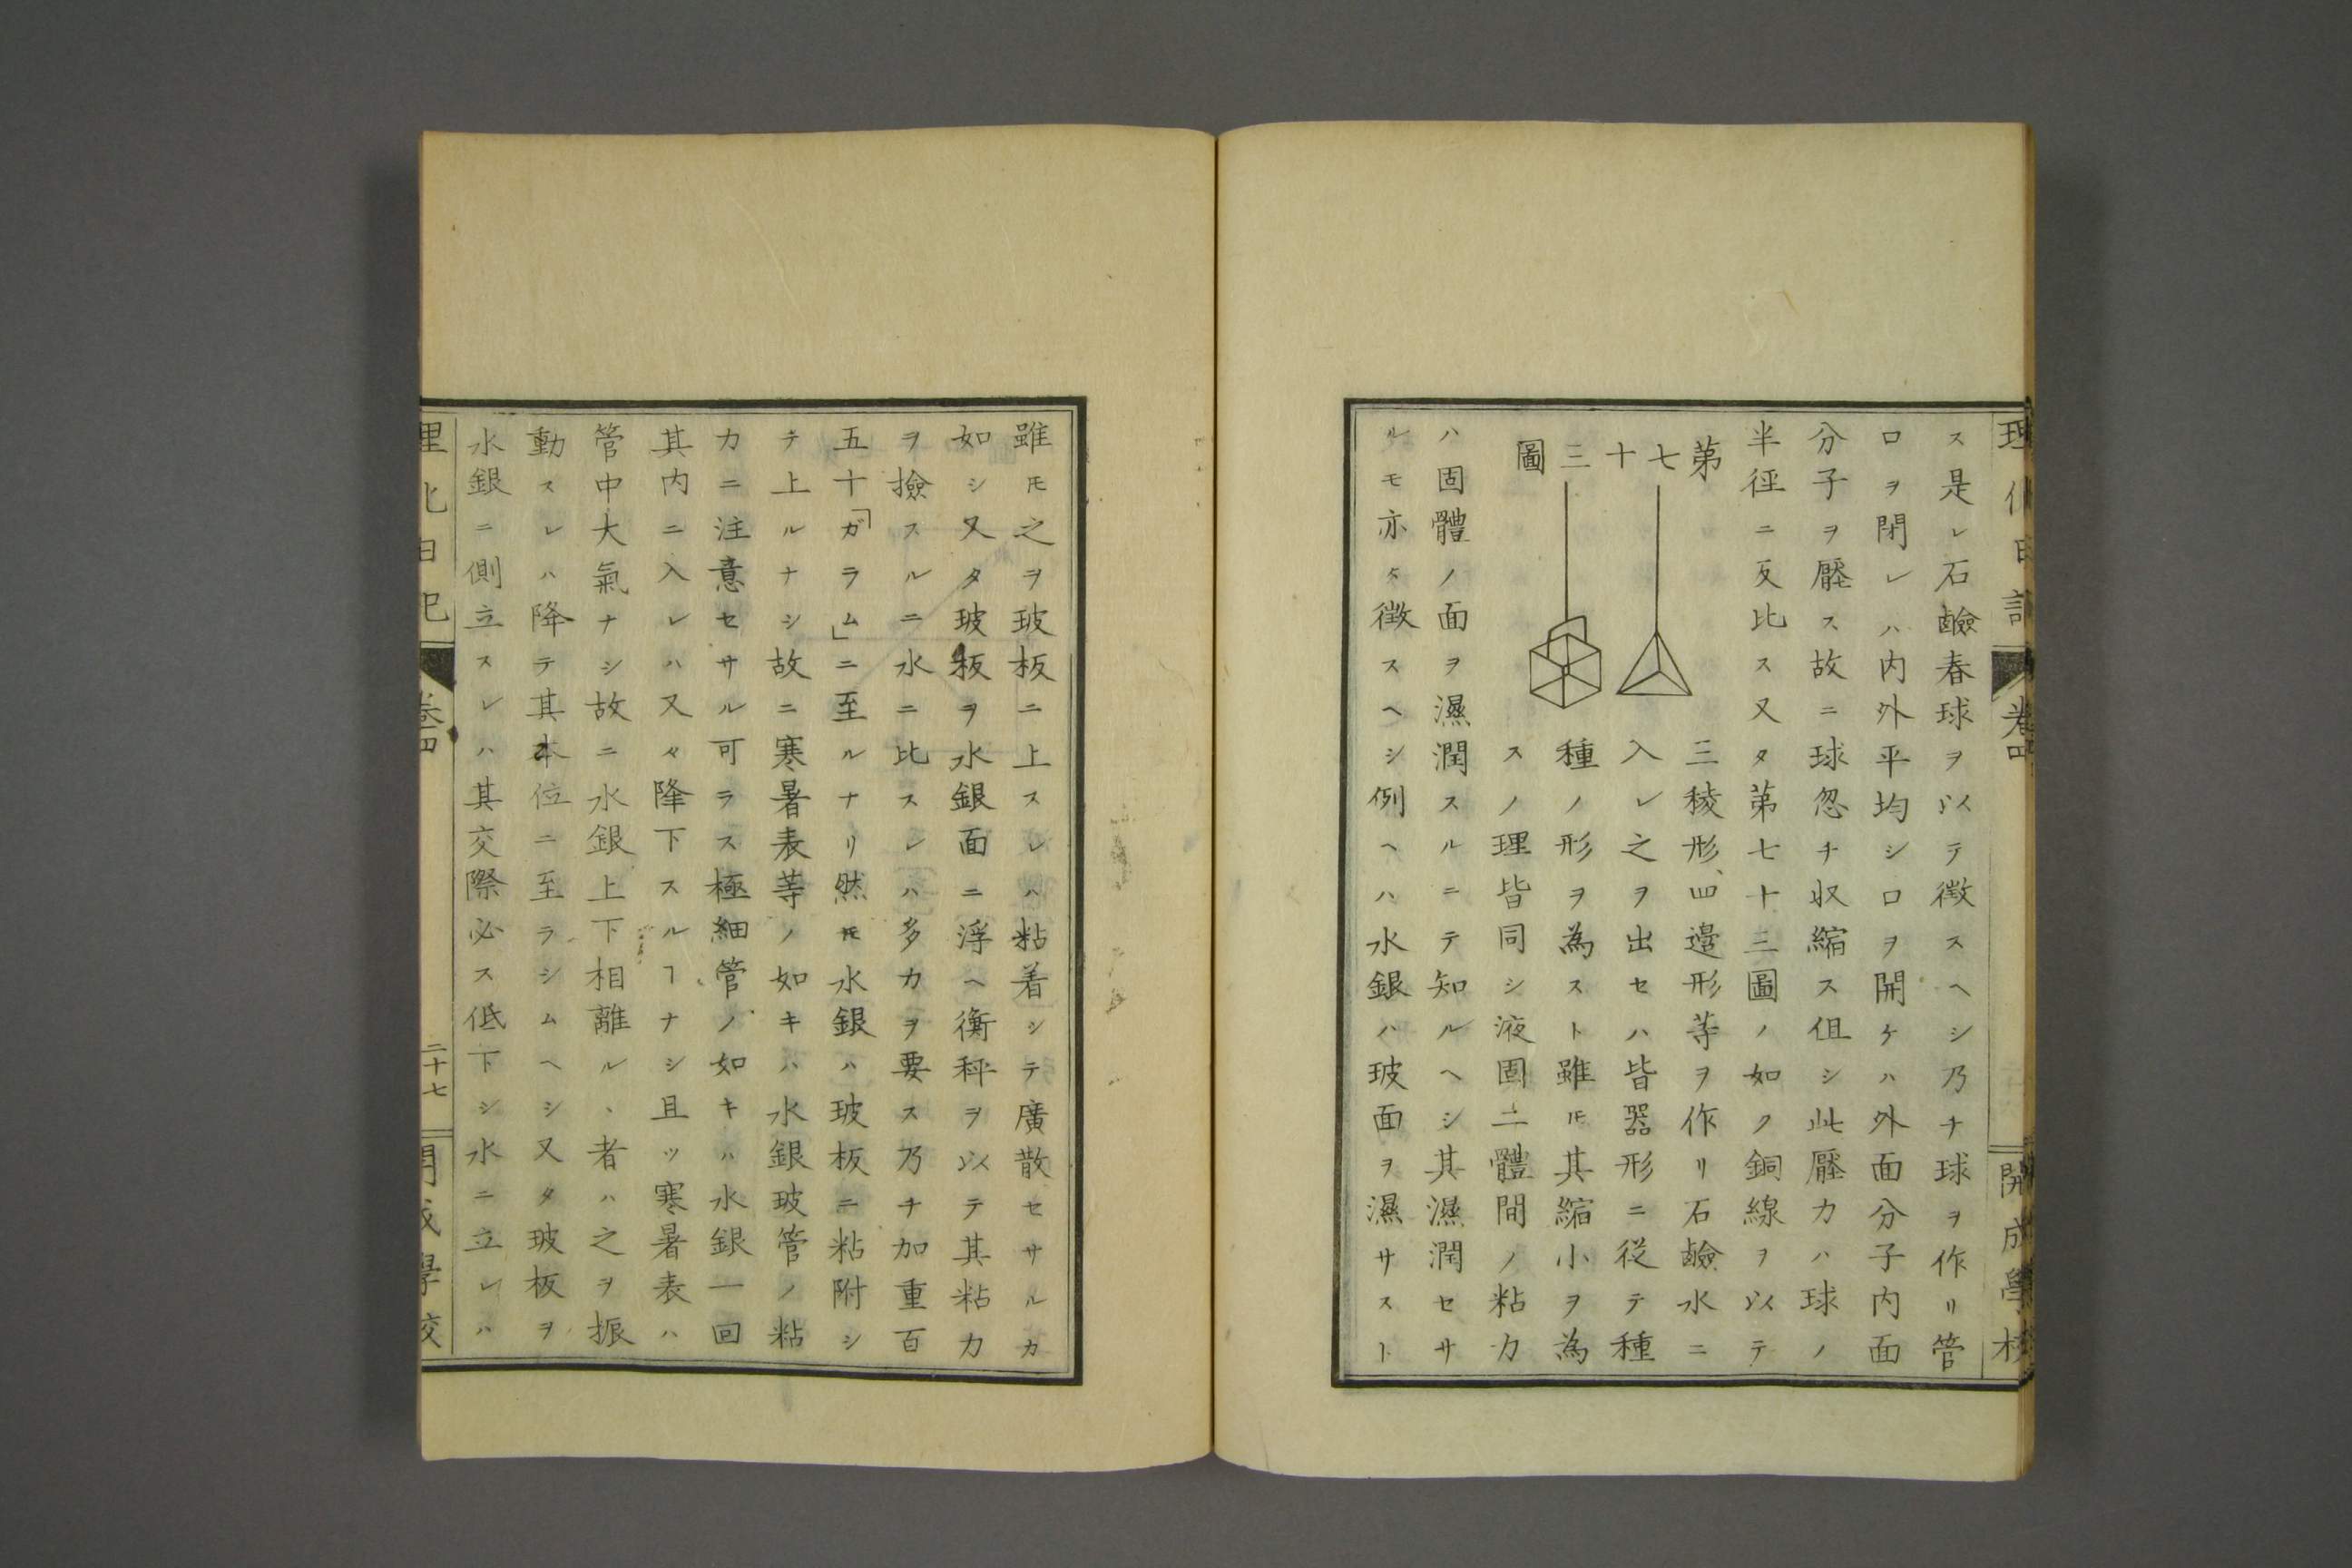 理化日記 卷四 開成學校
ス是レ石鹼春球ヲ以テ徴スヘシ乃チ球ヲ作リ管
口ヲ閉レハ内外平均シ口ヲ開ケハ外面分子内面
分子ヲ壓ス故ニ球忽チ収縮ス但シ此壓力ハ球ノ
半径ニ反比ス又タ第七十三圖ノ如ク銅線ヲ以テ
第七十三圖
三稜形、四邉形等ヲ作リ石鹼水ニ
入レ之ヲ出セハ皆器形ニ從テ種
種ノ形ヲ為スト雖𪜈其縮小ヲ為
スノ理皆同シ液固二體間ノ粘力
ハ固體ノ面ヲ濕潤スルニテ知ルヘシ其濕潤セサ
ルモ亦タ徴スヘシ例ヘハ水銀ハ玻面ヲ濕サスト
雖𪜈之ヲ玻板ニ上スレハ粘着シテ廣散セサルカ
如シ又タ玻板ヲ水銀面ニ浮ヘ衡秤ヲ以テ其粘力
ヲ撿スルニ水ニ比スレハ多力ヲ要ス乃チ加重百
五十「ガラム」ニ至ルナリ然𪜈水銀ハ玻板ニ粘附シ
テ上ルナシ故ニ寒暑表等ノ如キハ水銀玻管ノ粘
力ニ注意セサル可ラス極細管ノ如キハ水銀一回
其内ニ入レハ又々降下スルヿナシ且ツ寒暑表ハ
管中大氣ナシ故ニ水銀上下相離ル、者ハ之ヲ振
動スレハ降テ其本位ニ至ラシムヘシ又タ玻板ヲ
水銀ニ側立スレハ其交際必ス低下シ水ニ立レハ
理化日記 卷四 二十七 開成學校